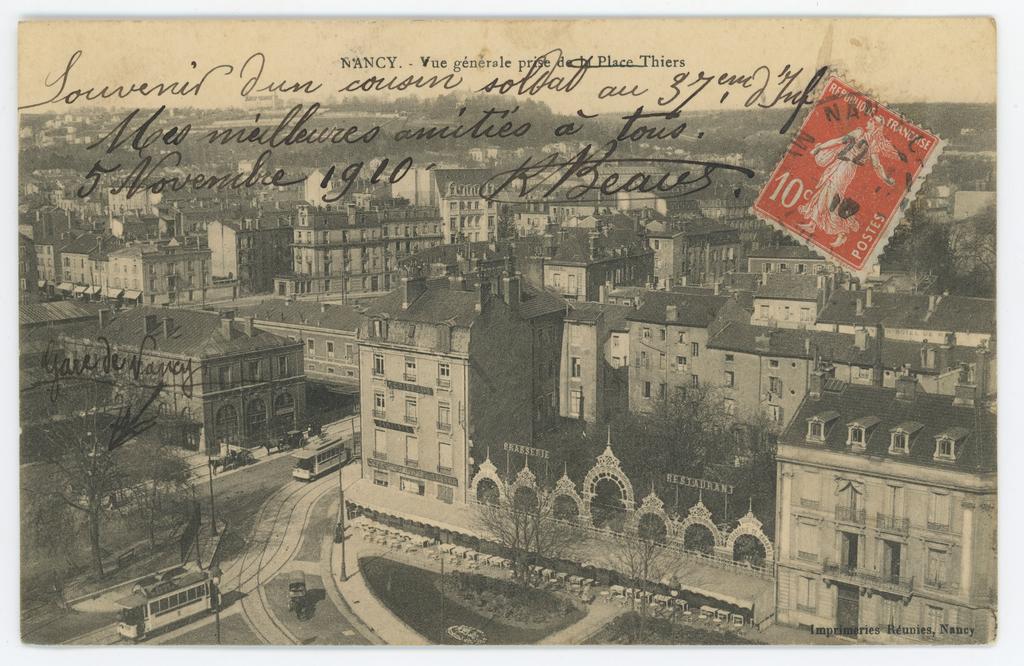 NANCY. - Vue générale prise de la Place Thiers
Souvenir d'un cousin soldat au 37eme d'Inf
Mes meilleures amitiés à tous.
5 Novembre 1910
REPUBLIQUE FRANÇAISE
10c
POSTES
NANCY
22
10
Gare de Nancy
BRASSERIE
RESTAURANT
HOTEL
Imprimeries Réunies, Nancy